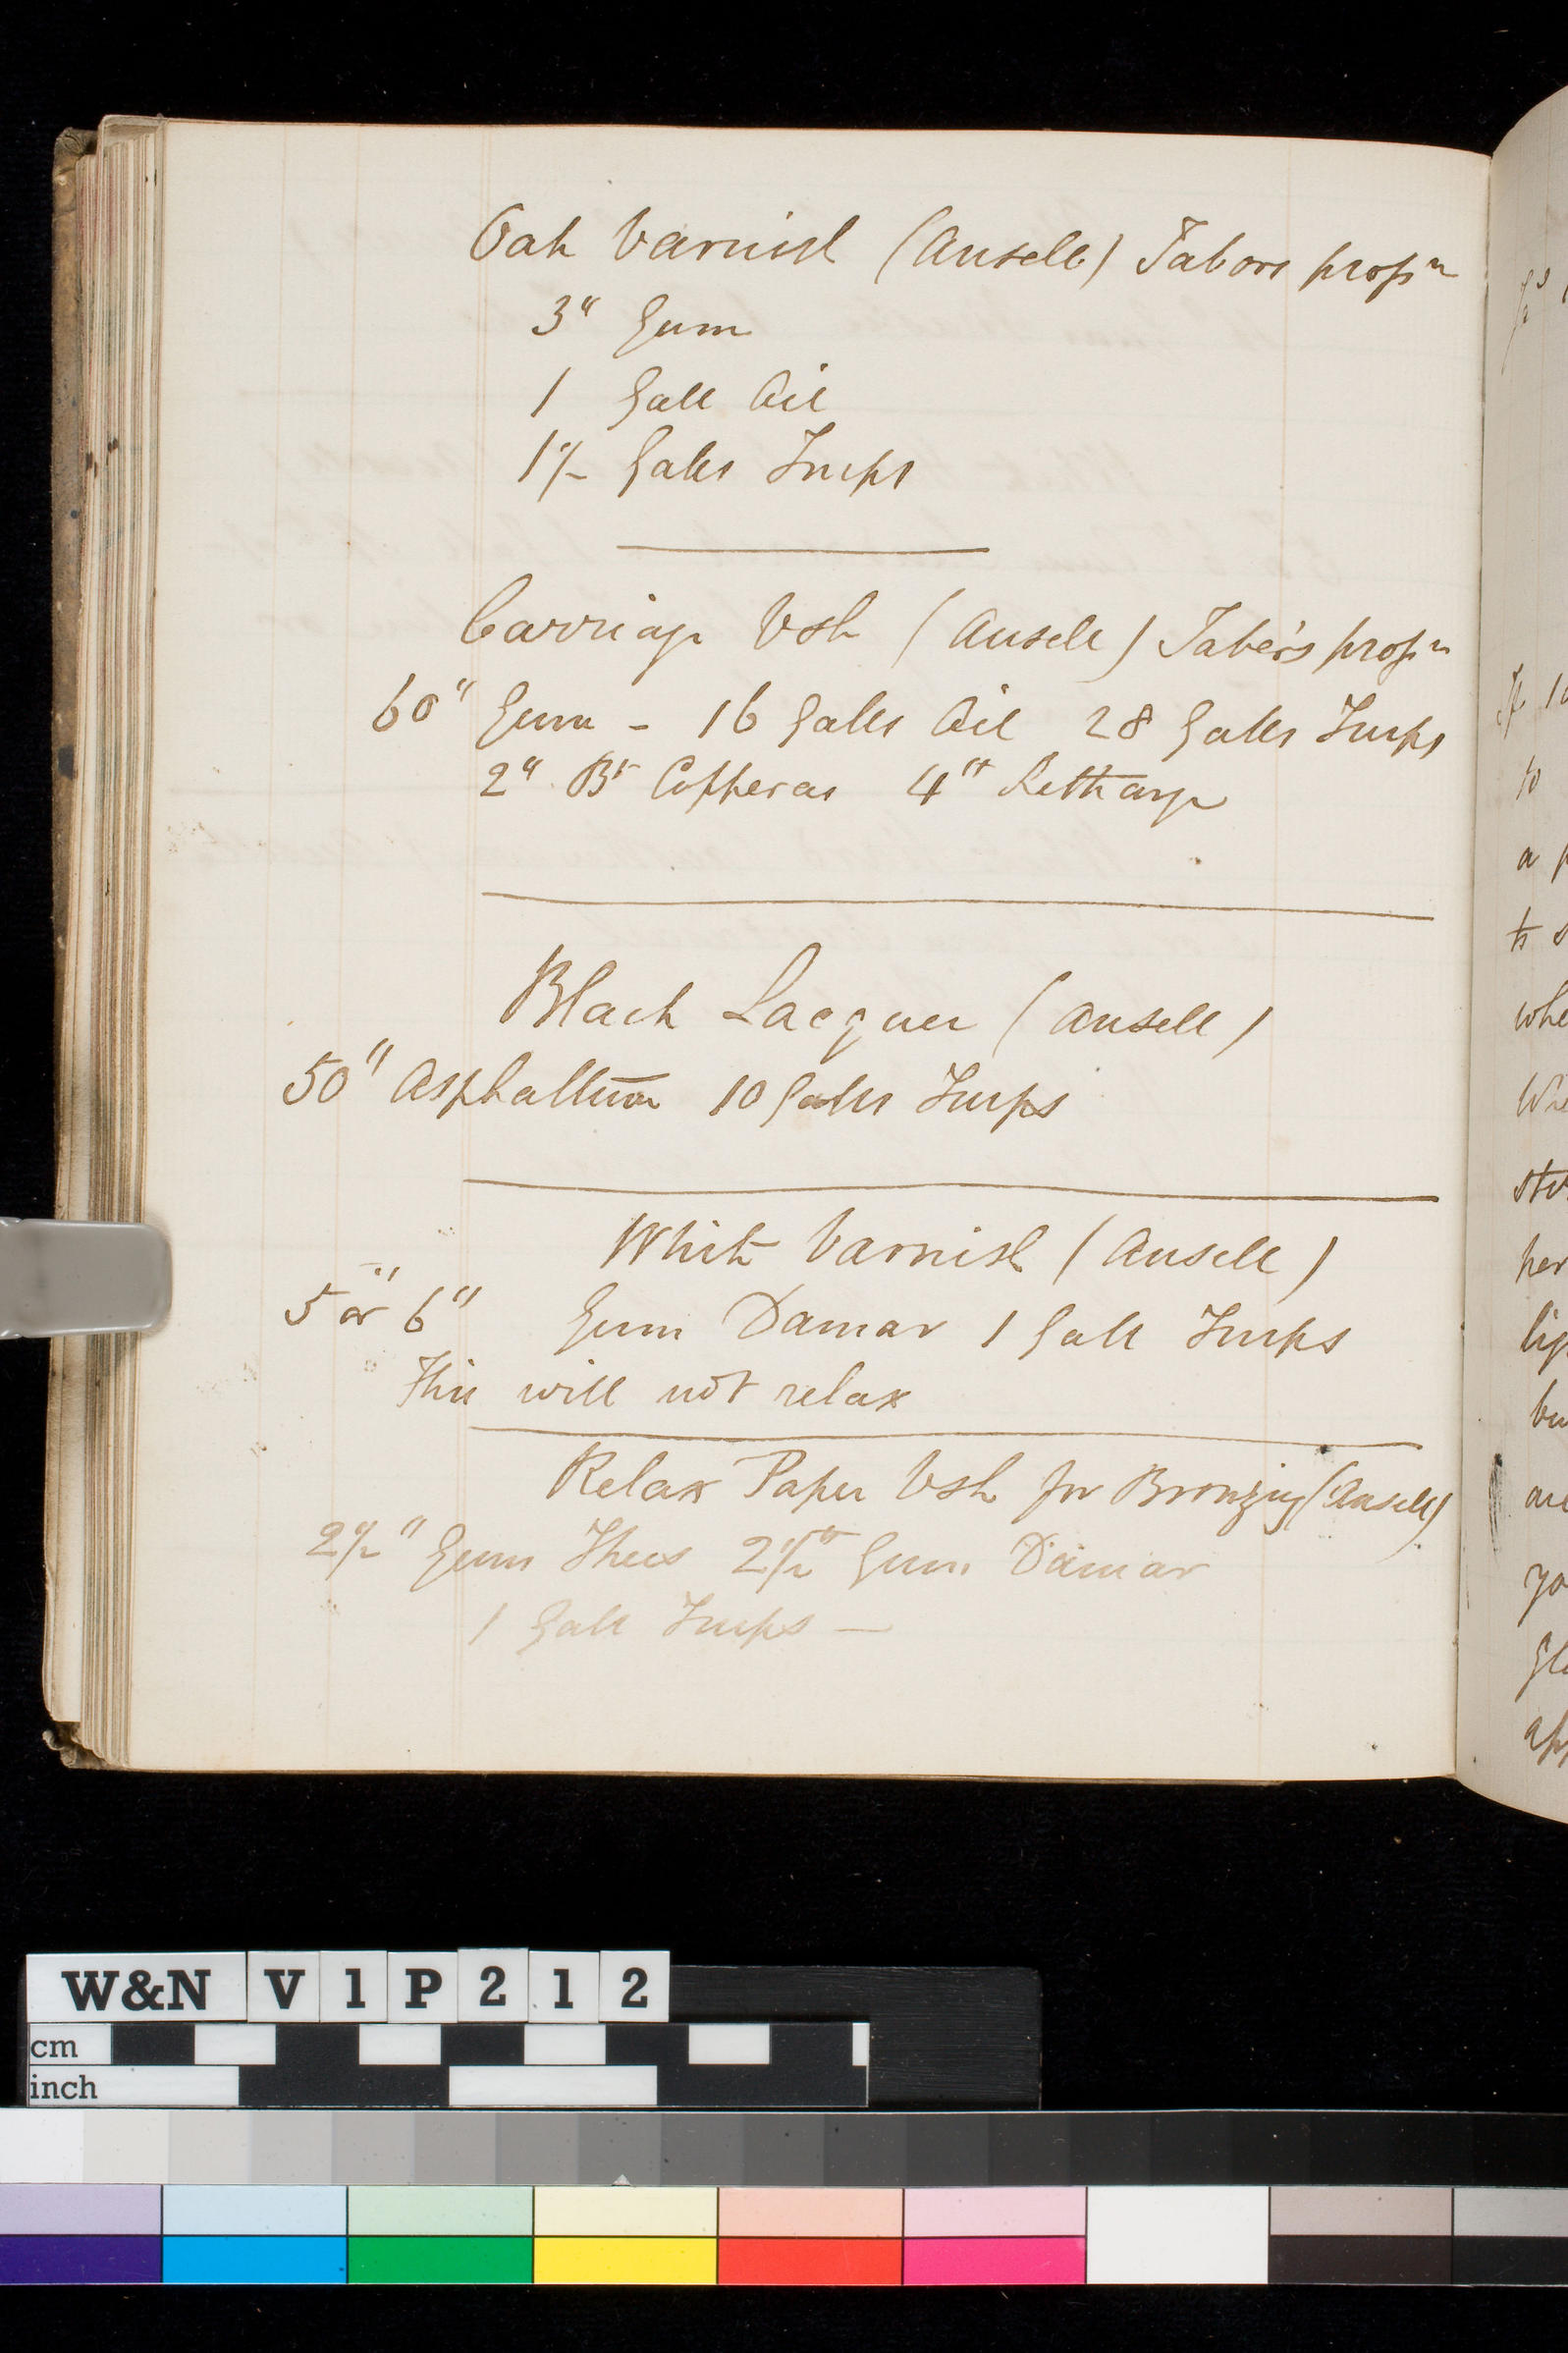 Oak Varnish (Ansell) Tabors propn
3" Gum
1 Gall Oil
1½ Galls Turps
Carriage Vsh (Ansell) Tabers propn
60" Gum - 16 Galls Oil 28 Galls Turps
2" Bt Copperas 4" Litharge
Black Lacquer (Ansell)
50" Asphaltum 10 Galls Turps
White Varnish (Ansell)
5" or 6" Gum Damar 1 Gall Turps
This will not relax
Relax Paper Vsh for Bronzing (Ansell)
2½" Gum Thus 2½" Gum Damar
1 Gall Turps —
W&N V1P212
cm
inch